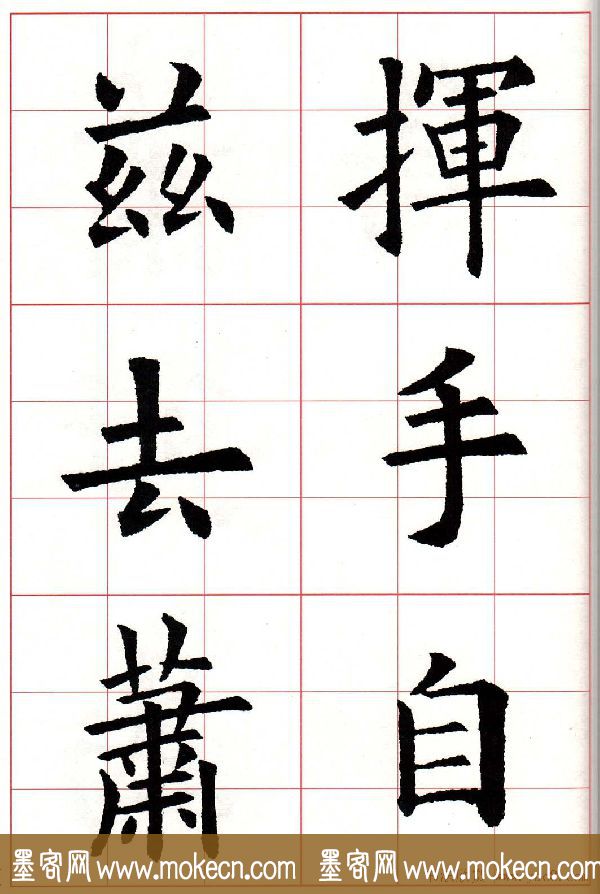 揮手自
茲去蕭
墨客网 www.mokecn.com 墨客网 www.mokecn.com